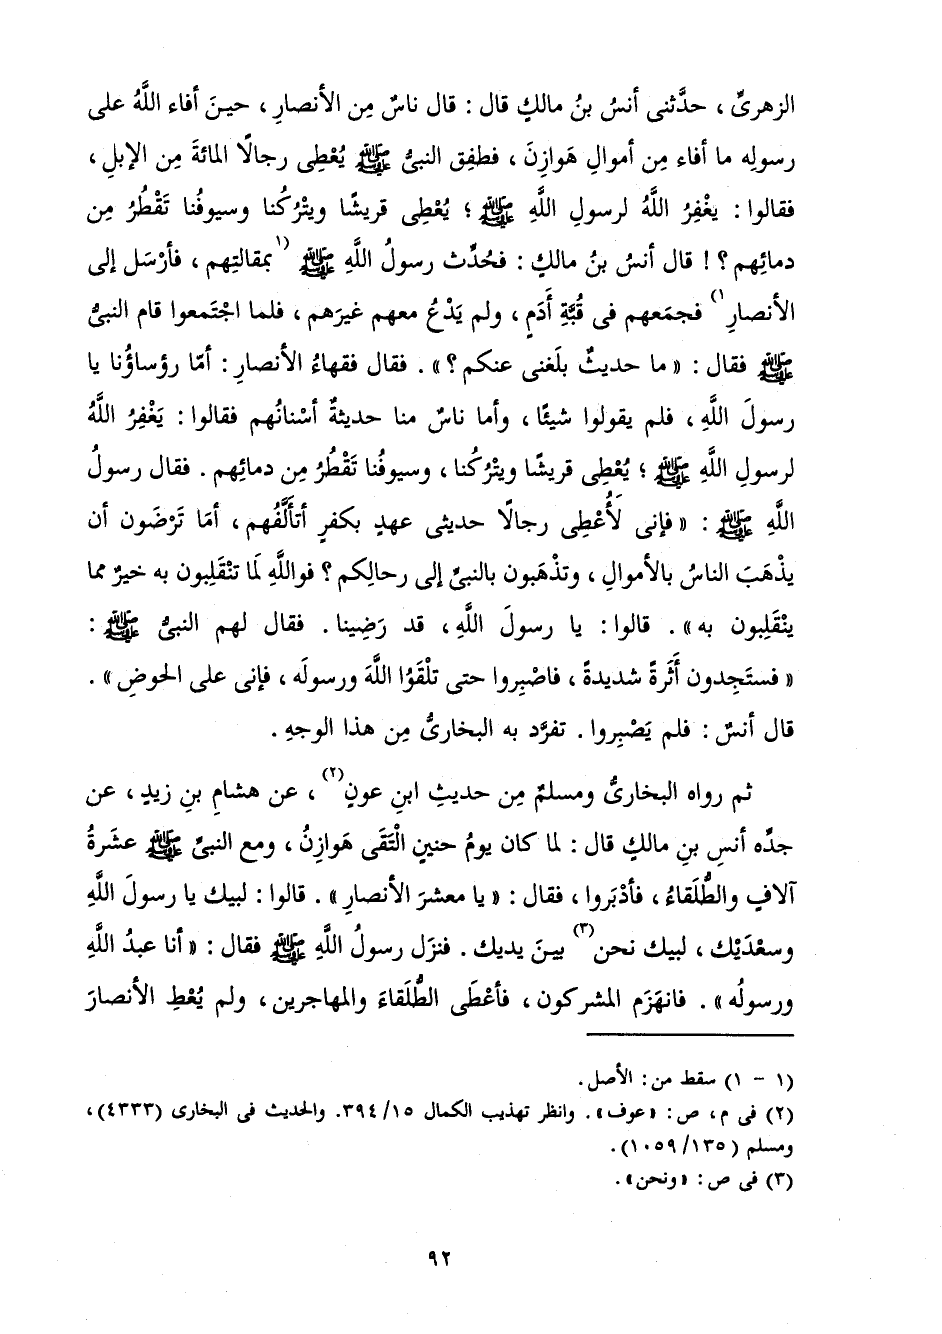 الزهرىِّ ، حدَّثنى أنسُ بنُ مالكٍ قال : قال ناسٌ مِن الأنصارِ ، حينَ أفاء اللَّهُ على
رسولِه ما أفاء مِن أموالِ هَوازِنَ ، فطفِق النبىُّ ﷺ يُعْطِى رجالًا المائةَ مِن الإبلِ ،
فقالوا : يغْفِرُ اللَّهُ لرسولِ اللَّهِ ﷺ ؛ يُعْطِى قريشًا ويتْرُكُنا وسيوفُنا تَقْطُرُ مِن
دمائِهم ؟ ! قال أنسُ بنُ مالكٍ : فحُدِّث رسولُ اللَّهِ ﷺ (١ بمقالتِهم ، فأرْسَل إلى
الأنصارِ ١) فجمَعهم فى قُبَّةِ أَدَمٍ ، ولم يَدْعُ معهم غيرَهم ، فلما اجْتَمعوا قام النبىُّ
ﷺ فقال : « ما حديثٌ بلَغنى عنكم ؟ » . فقال فقهاءُ الأنصارِ : أمّا رؤساؤُنا يا
رسولَ اللَّهِ ، فلم يقولوا شيئًا ، وأما ناسٌ منا حديثةٌ أسْنانُهم فقالوا : يَغْفِرُ اللَّهُ
لرسولِ اللَّهِ ﷺ ؛ يُعْطِى قريشًا ويتْرُكُنا ، وسيوفُنا تَقْطُرُ مِن دمائِهم . فقال رسولُ
اللَّهِ ﷺ : « فإنى لَأُعْطِى رجالًا حديثى عهدٍ بكفرٍ أتألَّفُهم ، أمَا تَرْضَون أن
يذْهَبَ الناسُ بالأموالِ ، وتذْهَبون بالنبىِّ إلى رحالِكم ؟ فواللَّهِ لَمَا تنْقَلِبون به خيرٌ مما
ينْقَلِبون به » . قالوا : يا رسولَ اللَّهِ ، قد رَضِينا . فقال لهم النبىُّ ﷺ :
« فستَجِدون أَثَرةً شديدةً ، فاصْبِروا حتى تلْقَوُا اللَّهَ ورسولَه ، فإنى على الحوضِ » .
قال أنسٌ : فلم يَصْبِروا . تفرَّد به البخارىُّ مِن هذا الوجهِ .
ثم رواه البخارىُّ ومسلمٌ مِن حديثِ ابنِ عونٍ (٢) ، عن هشامِ بنِ زيدٍ ، عن
جدِّه أنسِ بنِ مالكٍ قال : لما كان يومُ حنينٍ الْتَقَى هَوازِنُ ، ومع النبىِّ ﷺ عشَرةُ
آلافٍ والطُّلَقاءُ ، فأدْبَروا ، فقال : « يا معشرَ الأنصارِ » . قالوا : لبيك يا رسولَ اللَّهِ
وسعْدَيْك ، لبيك نحن (٣) بينَ يديك . فنزَل رسولُ اللَّهِ ﷺ فقال : « أنا عبدُ اللَّهِ
ورسولُه » . فانهزَم المشركون ، فأعْطَى الطُّلَقاءَ والمهاجرين ، ولم يُعْطِ الأنصارَ
(١ - ١) سقط من : الأصل .
(٢) فى م ، ص : « عوف » . وانظر تهذيب الكمال ٣٩٤/١٥ . والحديث فى البخارى (٤٣٣٣) ،
ومسلم (١٠٥٩/١٣٥) .
(٣) فى ص : « ونحن » .
٩٢